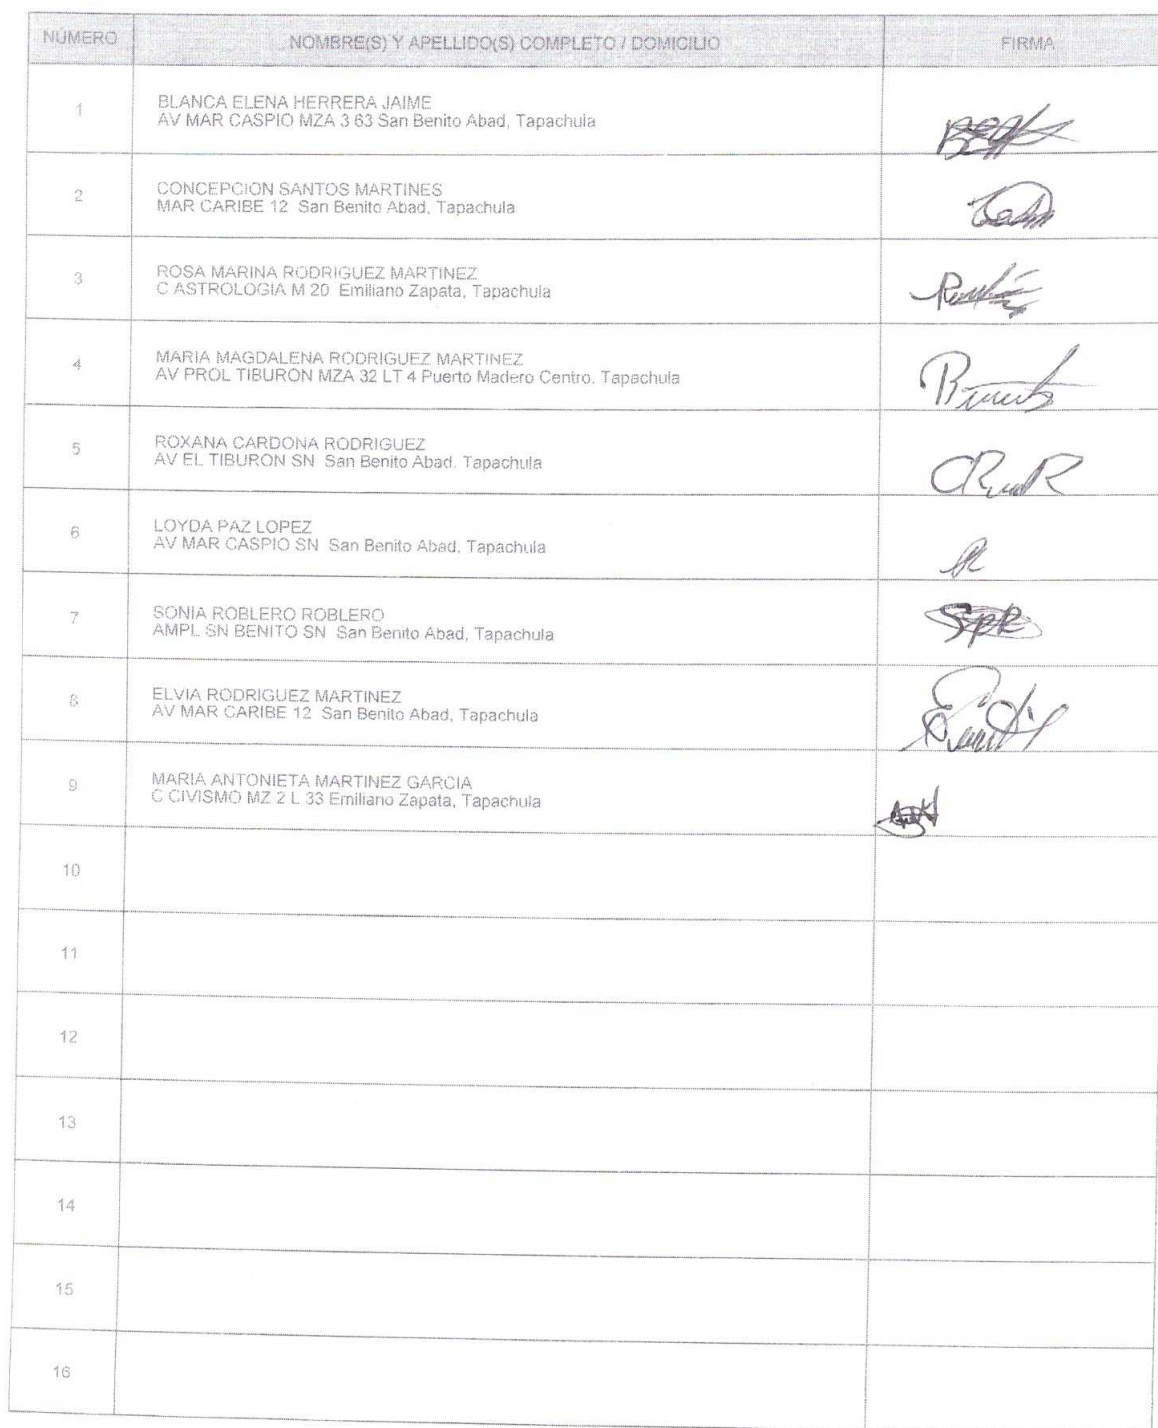 NÚMERO NOMBRE(S) Y APELLIDO(S) COMPLETO / DOMICILIO FIRMA
1 BLANCA ELENA HERRERA JAIME
AV MAR CASPIO MZA 3 63 San Benito Abad, Tapachula
2 CONCEPCION SANTOS MARTINES
MAR CARIBE 12 San Benito Abad, Tapachula
3 ROSA MARINA RODRIGUEZ MARTINEZ
C ASTROLOGIA M 20 Emiliano Zapata, Tapachula
4 MARIA MAGDALENA RODRIGUEZ MARTINEZ
AV PROL TIBURON MZA 32 LT 4 Puerto Madero Centro. Tapachula
5 ROXANA CARDONA RODRIGUEZ
AV EL TIBURON SN San Benito Abad. Tapachula
6 LOYDA PAZ LOPEZ
AV MAR CASPIO SN San Benito Abad, Tapachula
7 SONIA ROBLERO ROBLERO
AMPL SN BENITO SN San Benito Abad, Tapachula
8 ELVIA RODRIGUEZ MARTINEZ
AV MAR CARIBE 12 San Benito Abad, Tapachula
9 MARIA ANTONIETA MARTINEZ GARCIA
C CIVISMO MZ 2 L 33 Emiliano Zapata, Tapachula
10
11
12
13
14
15
16